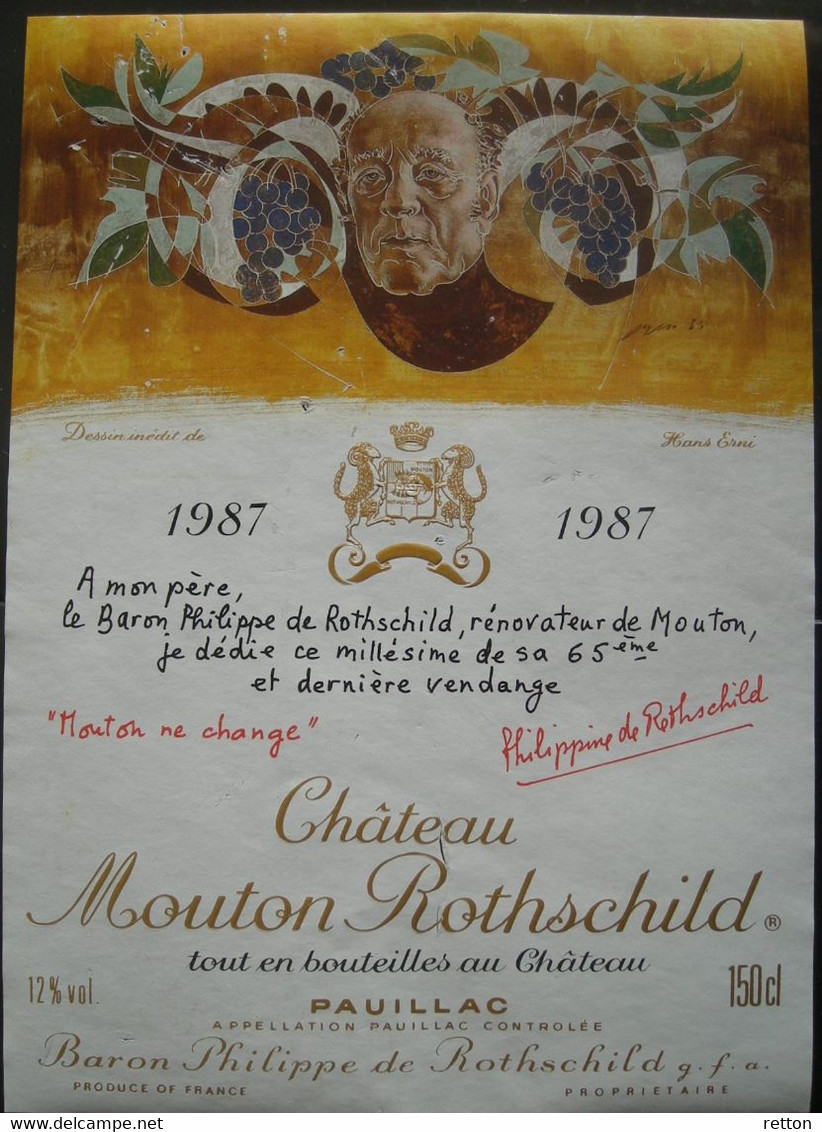 Dessin inédit de Hans Erni
MOUTON
1987 1987
A mon père,
le Baron Philippe de Rothschild, rénovateur de Mouton,
je dédie ce millésime de sa 65ème
et dernière vendange
"Mouton ne change" Philippine de Rothschild
Château
Mouton Rothschild ®
tout en bouteilles au Château
12% vol. 150 cl
PAUILLAC
APPELLATION PAUILLAC CONTROLÉE
Baron Philippe de Rothschild g.f.a.
PRODUCE OF FRANCE PROPRIETAIRE
delcampe.net retton